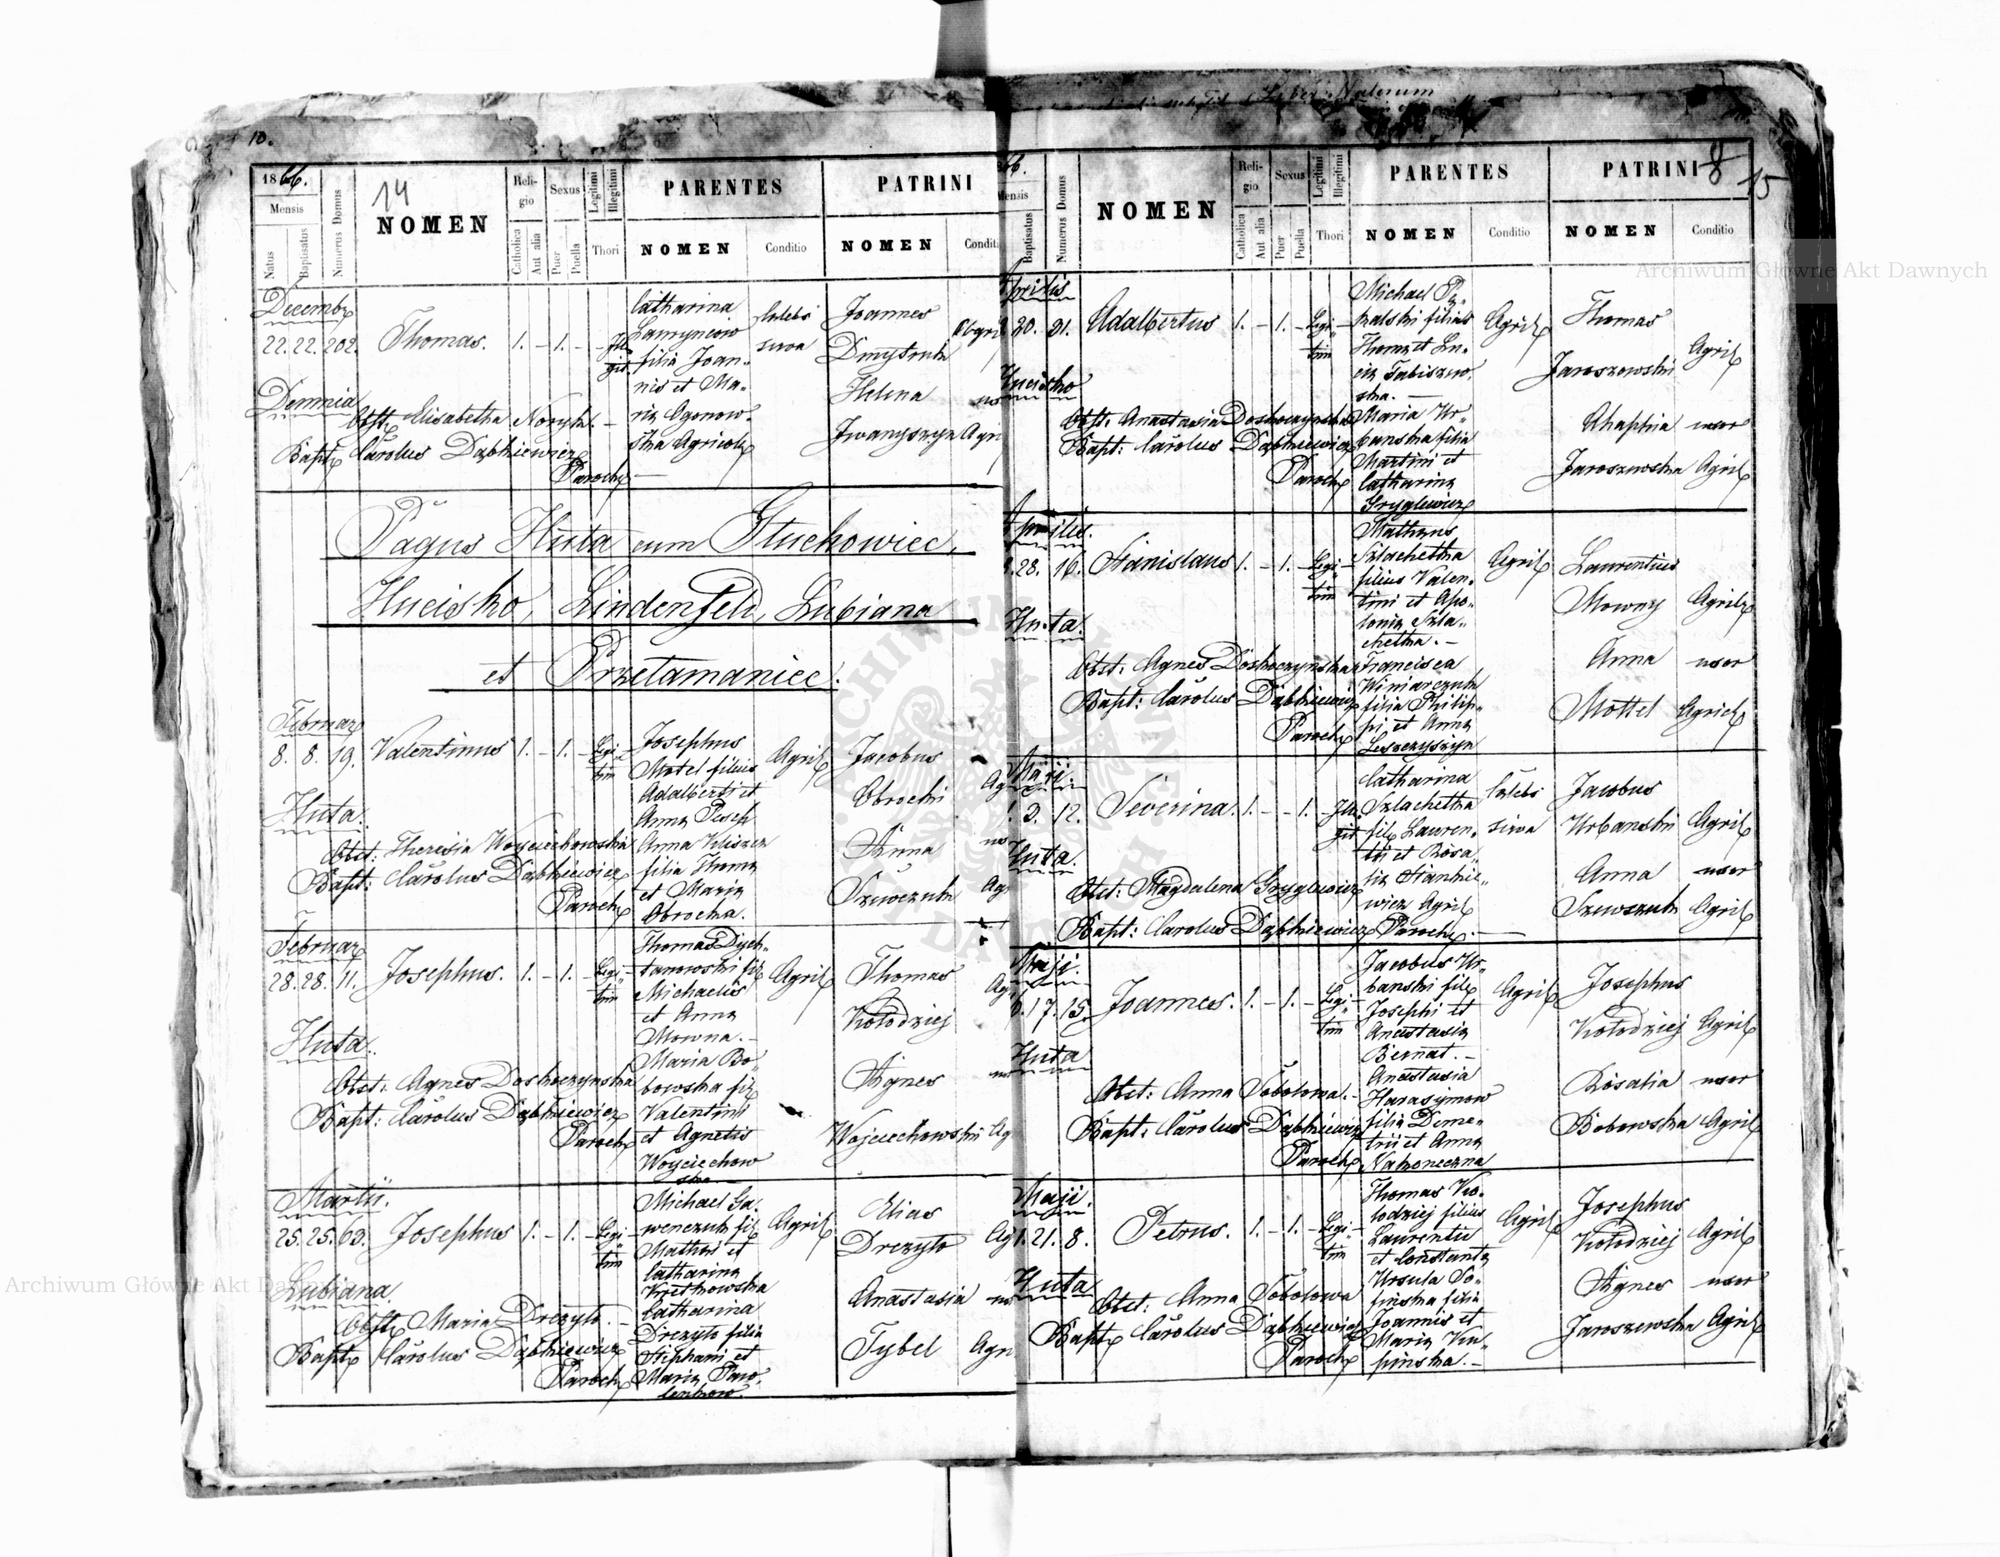 10.
1866.
Mensis
Natus
Baptisatus
Numerus Domus
14
NOMEN
Religio
Catholica
Aut alia
Sexus
Puer
Puella
Legitimi
Illegitimi
Thori
PARENTES
NOMEN
Conditio
PATRINI
NOMEN
Conditi
Decembr
22. 22. 202. Thomas. 1. – 1. –
Demnia
Catharina
Ławryncow
filia Joan-
nis et Ma-
ria Agonow-
ska Agricola
Joannes
Dmytruk
Helena
Iwanyszyn Agri
Obst. Elisabetha Noryk
Bapt. Carolus Dąbkiewicz
Paroch
Pagus Huta cum Głuchowiec,
Hucisko, Lindenfeld, Lubiana
et Przełamaniec.
Februar
8. 8. 19. Valentinus 1. – 1. – Legi-
tim
Huta.
Josephus
Motel filius
Adalberti et
Anna
Anna
filia Thoma
et Maria
Obrocka.
Agric
Jacobus
Obrocki
Anna
Szewczuk
Obst: Theresia Woyciechowska
Bapt: Carolus Dąbkiewicz
Paroch
Februar
28. 28. 11. Josephus. 1. – 1. – Legi-
tim
Huta.
Thomas Dych-
tanowski fil
Michaelis
et Anna
Mowna. –
Maria Bo-
bowska fil
Valentini
et Agnetis
Woyciechow
ska
Agric
Thomas
Kołodziej
Agnes
Wojciechowski Ag
Obst: Agnes Doskoczynska
Bapt: Carolus Dąbkiewicz
Paroch
Martii.
25. 25. 63. Josephus 1. – 1. – Legi-
tim
Lubiana.
Michael Ga-
wenczuk fil
Mathei et
Catharina
Kretkowska
Catharina
Drezyło filia
Stephani et
Maria Paw-
lenkow.
Agric
Elias
Drezyło
Anastasia
Tybel Agr
Obst Maria Drezyło. –
Bapt Carolus Dąbkiewicz
Paroch
Liber Natorum
8
15
66.
Mensis
Baptisatus
Numerus Domus
NOMEN
Religio
Catholica
Aut alia
Sexus
Puer
Puella
Legitimi
Illegitimi
Thori
PARENTES
NOMEN
Conditio
PATRINI
NOMEN
Conditio
Aprilis
20. 21. Adalbertus 1. – 1. – Legi-
tim
Hucisko
Michael
filius
Thoma et Lu-
cia Tabiszew-
ska. –
Maria Ur-
banska filia
Martini et
Catharina
Gryglewicz
Agric
Thomas
Jaroszewski Agric
Ahaphia uxor
Jaroszewska Agric
Obst. Anastasia Doskoczynska
Bapt: Carolus Dąbkiewicz
Paroch
Aprilis.
28. 16. Stanislaus 1. – 1. – Legi-
tim
Huta.
Mathaus
Szlachetka
filius Valen-
tini et Apo-
lonia Szla-
chetka. –
Francisca
Winiarczuk
filia Philip-
pi et Anna
Leszczyszyn
Agric
Laurentius
Mowny Agric
Anna uxor
Mottel Agric
Obst: Agnes Doskoczynska
Bapt: Carolus Dąbkiewicz
Paroch
Maji.
3. 12. Severina. 1. – – 1. –
Huta.
Catharina
Szlachetka
fil Lauren-
tii et Rosa-
lia Stankie-
wicz Agric
Jacobus
Urbanski Agric
Anna uxor
Szewczuk Agric
Obst: Magdalena Gryglewicz
Bapt: Carolus Dąbkiewicz Paroch. –
Maji.
17. 15. Joannes. 1. – 1. – Legi-
tim
Huta
Jacobus Ur-
banski fil
Josephi et
Anastasia
Bernat. –
Anastasia
Harasymow
filia Deme-
trii et Anna
Nakoneczna
Agric
Josephus
Kołodziej Agric
Rosalia uxor
Bobowska Agric
Obst: Anna Sobolowa. –
Bapt: Carolus Dąbkiewicz
Paroch
Maji.
21. 8. Petrus. 1. – 1. – Legi-
tim
Huta
Thomas Ko-
lodziej filius
Laurentii
et Constantia
Ursula So-
pinska filia
Joannis et
Maria Kru-
pinska. –
Agric
Josephus
Kołodziej Agric
Agnes uxor
Jaroszewska Agric
Obst: Anna Sobolowa
Bapt Carolus Dąbkiewicz
Paroch
Archiwum Główne Akt Dawnych
Archiwum Główne Akt Dawnych